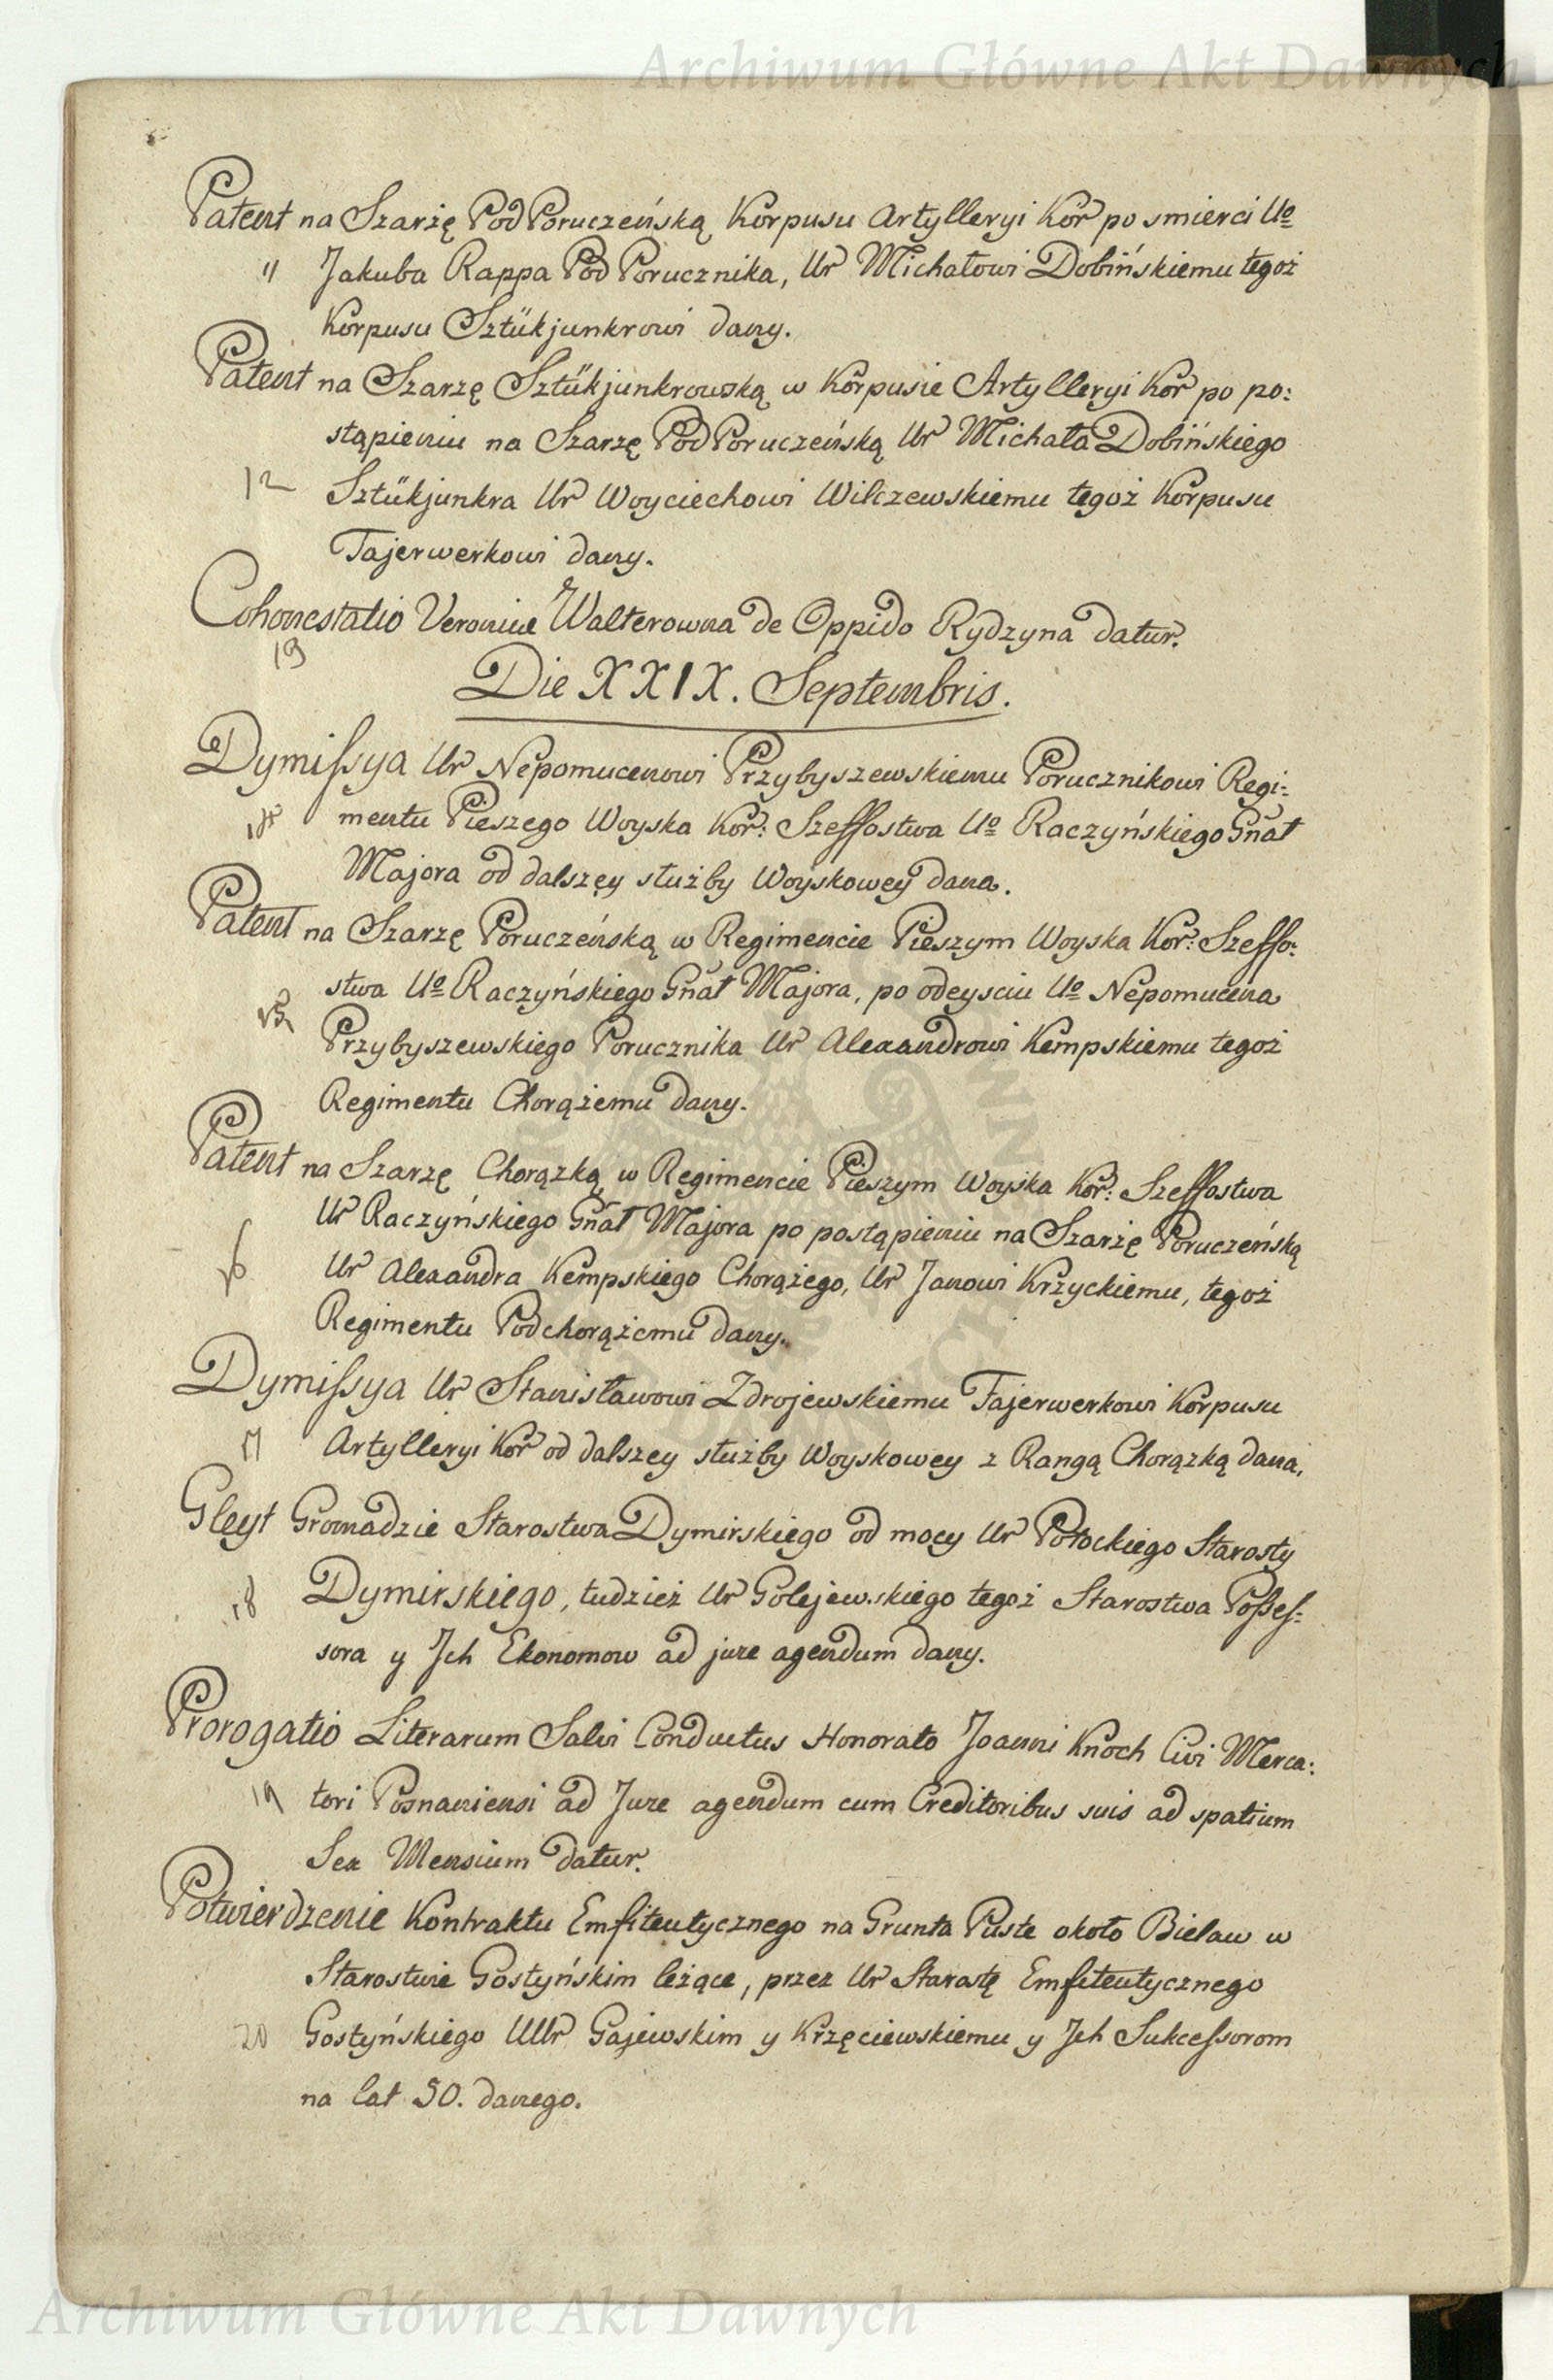 Archiwum Główne Akt Dawnych
Patent na Szarżę PodPoruczeńską Korpusu Artylleryi Kor po smierci Uo
11 Jakuba Rappa Pod Porucznika, Ur Michałowi Dobińskiemu tegoż
Korpusu Sztükjunkrowi dany.
Patent na Szarżę Sztükjunkrowską w Korpusie Artylleryi Kor po po:
stąpieniu na Szarżę PodPoruczeńską Ur Michała Dobińskiego
12 Sztükjunkra Ur Woyciechowi Wilczewskiemu tegoż Korpusu
Fajerwerkowi dany.
Cohonestatio Veronicæ Walterowna de Oppido Rydzyna datur.
13
Die XXIX. Septembris.
Dymissya Ur Nepomucenowi Przybyszewskiemu Porucznikowi Regi:
14 mentu Pieszego Woyska Kor: Szeffostwa Uo Raczyńskiego Gnał
Majora od dalszey służby Woyskowey dana.
Patent na Szarżę Poruczeńską w Regimencie Pieszym Woyska Kor: Szeffo:
stwa Uo Raczyńskiego Gnał Majora, po odeysciu Uo Nepomucena
15 Przybyszewskiego Porucznika Ur Alexandrowi Kempskiemu tegoż
Regimentu Chorążemu dany.
Patent na Szarżę Chorązką w Regimencie Pieszym Woyska Kor: Szeffostwa
Ur Raczyńskiego Gnał Majora po postąpieniu na Szarżę Poruczeńską
16 Ur Alexandra Kempskiego Chorążego, Ur Janowi Krzyckiemu, tegoż
Regimentu Podchorążemu dany.
Dymissya Ur Stanisławowi Zdrojewskiemu Fajerwerkowi Korpusu
17 Artylleryi Kor od dalszey służby Woyskowey z Rangą Chorązką dana,
Gleyt Gromadzie Starostwa Dymirskiego od mocy Ur Potockiego Starosty
18 Dymirskiego, tudzież Ur Golejewskiego tegoż Starostwa Posses:
sora y Jch Ekonomow ad jure agendum dany.
Prorogatio Literarum Salvi Conductus Honorato Joanni Knoch Civi Merca:
19 tori Posnaniensi ad Jure agendum cum Creditoribus suis ad spatium
Sex Mensium datur.
Potwierdzenie Kontraktu Emfiteutycznego na Grunta Puste około Bielaw w
Starostwie Gostyńskim leżące, przez Ur Starostę Emfiteutycznego
20 Gostyńskiego UUr Gajewskim y Krzęciewskiemu y Jch Sukcessorom
na lat 50. danego.
Archiwum Główne Akt Dawnych